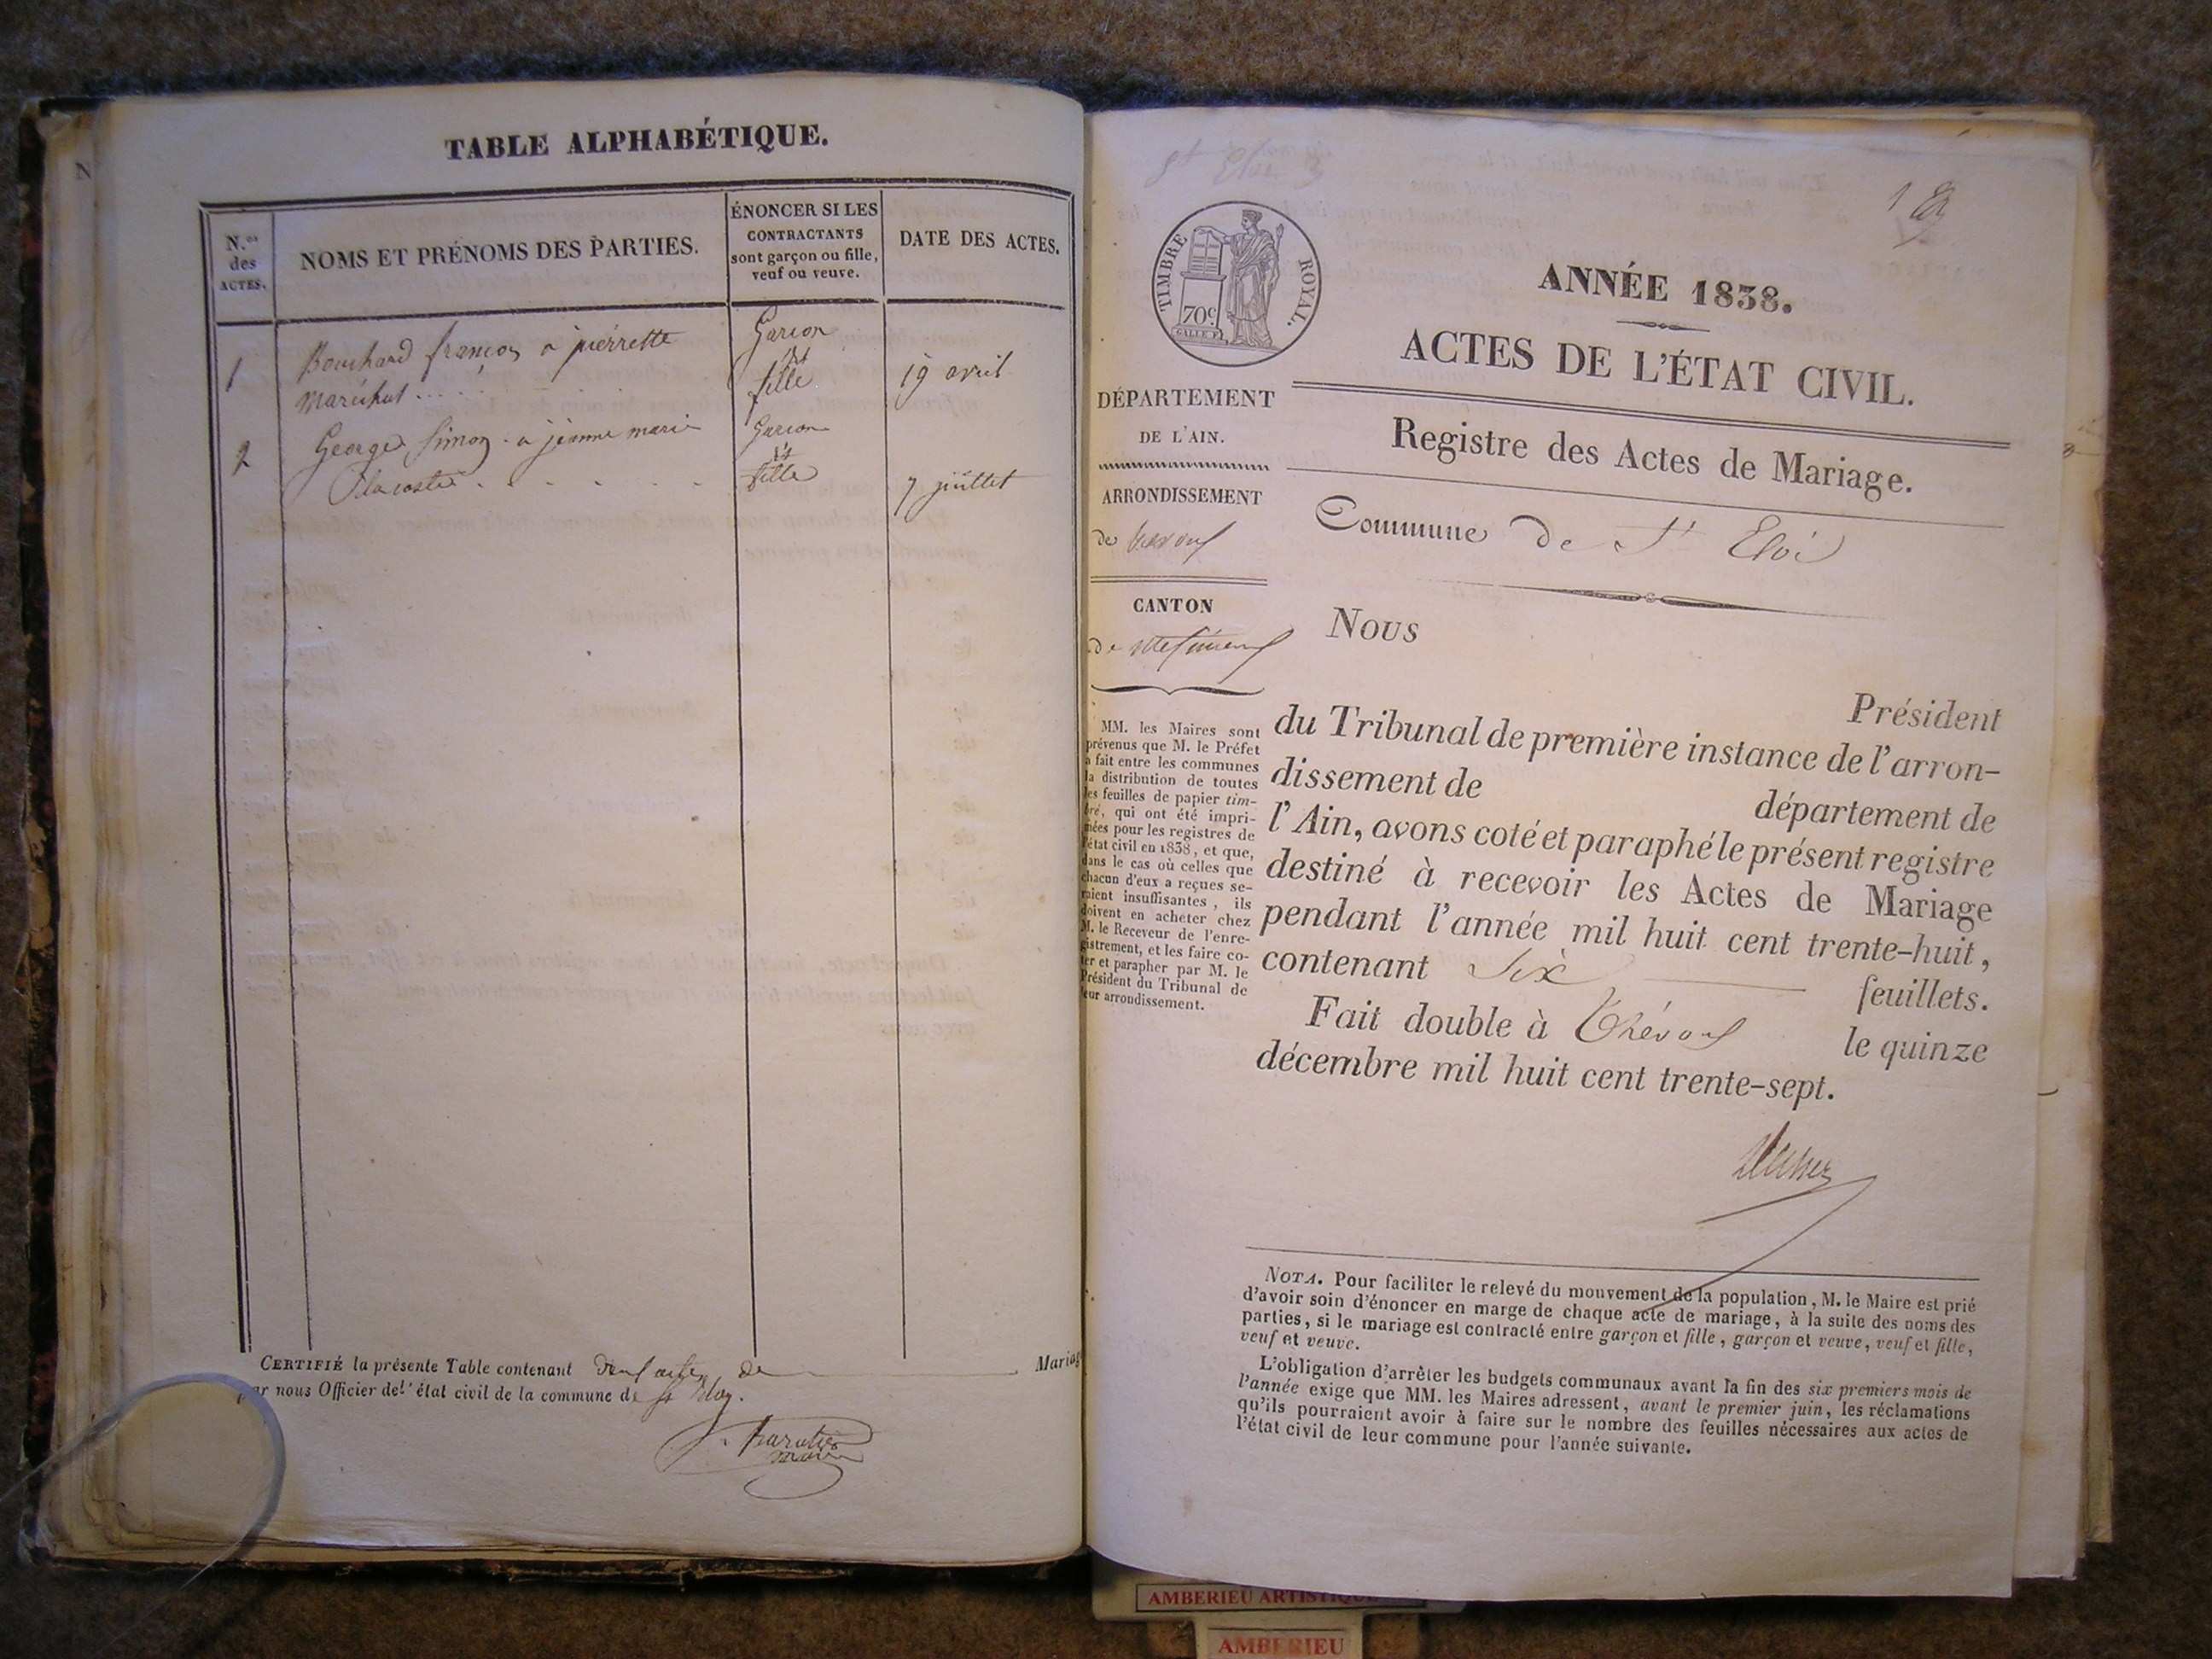 TABLE ALPHABÉTIQUE.
N.os
des
ACTES.
NOMS ET PRÉNOMS DES PARTIES.
ÉNONCER SI LES
CONTRACTANTS
sont garçon ou fille,
veuf ou veuve.
DATE DES ACTES.
1
Bouchard françois à pierrette
Maréchal . . . .
Garcon
et
fille
19 avril
2
George Simon à jeanne marie
Lacoste . . . . . .
Garcon
et
fille
7 juillet
CERTIFIÉ la présente Table contenant deux actes de Mariag
par nous Officier de l'état civil de la commune de st Eloy.
maire
St Eloi
1
TIMBRE ROYAL.
70c
ANNÉE 1838.
ACTES DE L'ÉTAT CIVIL.
Registre des Actes de Mariage.
Commune de St Eloi
DÉPARTEMENT
DE L'AIN.
ARRONDISSEMENT
de trevoux
CANTON
de
MM. les Maires sont
prévenus que M. le Préfet
a fait entre les communes
la distribution de toutes
les feuilles de papier tim-
bré, qui ont été impri-
mées pour les registres de
l'état civil en 1838, et que,
dans le cas où celles que
chacun d'eux a reçues se-
raient insuffisantes, ils
doivent en acheter chez
M. le Receveur de l'enre-
gistrement, et les faire co-
ter et parapher par M. le
Président du Tribunal de
leur arrondissement.
Nous
Président
du Tribunal de première instance de l'arron-
dissement de département de
l'Ain, avons coté et paraphé le présent registre
destiné à recevoir les Actes de Mariage
pendant l'année mil huit cent trente-huit,
contenant Six feuillets.
Fait double à Trévoux le quinze
décembre mil huit cent trente-sept.
NOTA. Pour faciliter le relevé du mouvement de la population, M. le Maire est prié
d'avoir soin d'énoncer en marge de chaque acte de mariage, à la suite des noms des
parties, si le mariage est contracté entre garçon et fille, garçon et veuve, veuf et fille,
veuf et veuve.
L'obligation d'arrêter les budgets communaux avant la fin des six premiers mois de
l'année exige que MM. les Maires adressent, avant le premier juin, les réclamations
qu'ils pourraient avoir à faire sur le nombre des feuilles nécessaires aux actes de
l'état civil de leur commune pour l'année suivante.
AMBERIEU ARTISTIQUE
AMBERIEU